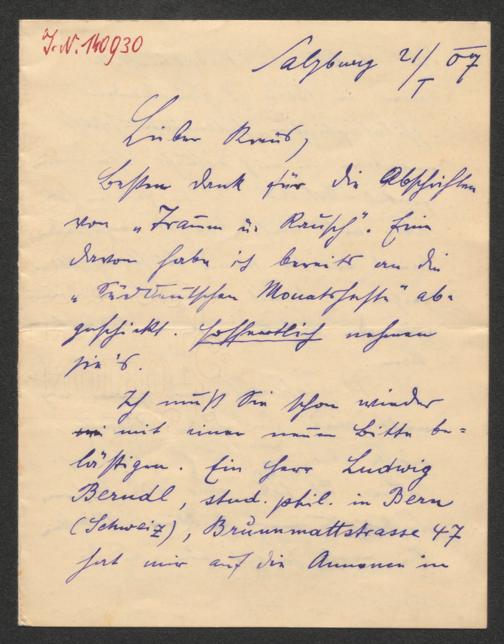 J.N. 140930
Salzburg 21/I 07
Lieber Kraus,
besten Dank für die Abschriften
von „Traum u. Rausch“. Eine
davon habe ich bereits an die
„Süddeutschen Monatshefte“ ab-
geschickt. Hoffentlich nehmen
sie's.
Ich muß Sie schon wieder
mit einer neuen Bitte be-
lästigen. Ein Herr Ludwig
Berndl, stud. phil. in Bern
(Schweiz), Brunnmattstrasse 47
hat mir auf die Annonce im